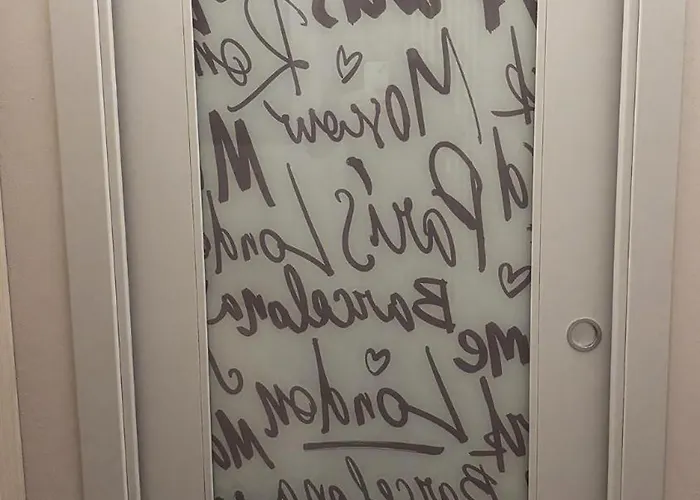 Rom
Moscow
Paris
Lond
Barcelona
me
London
rk
Barcelona